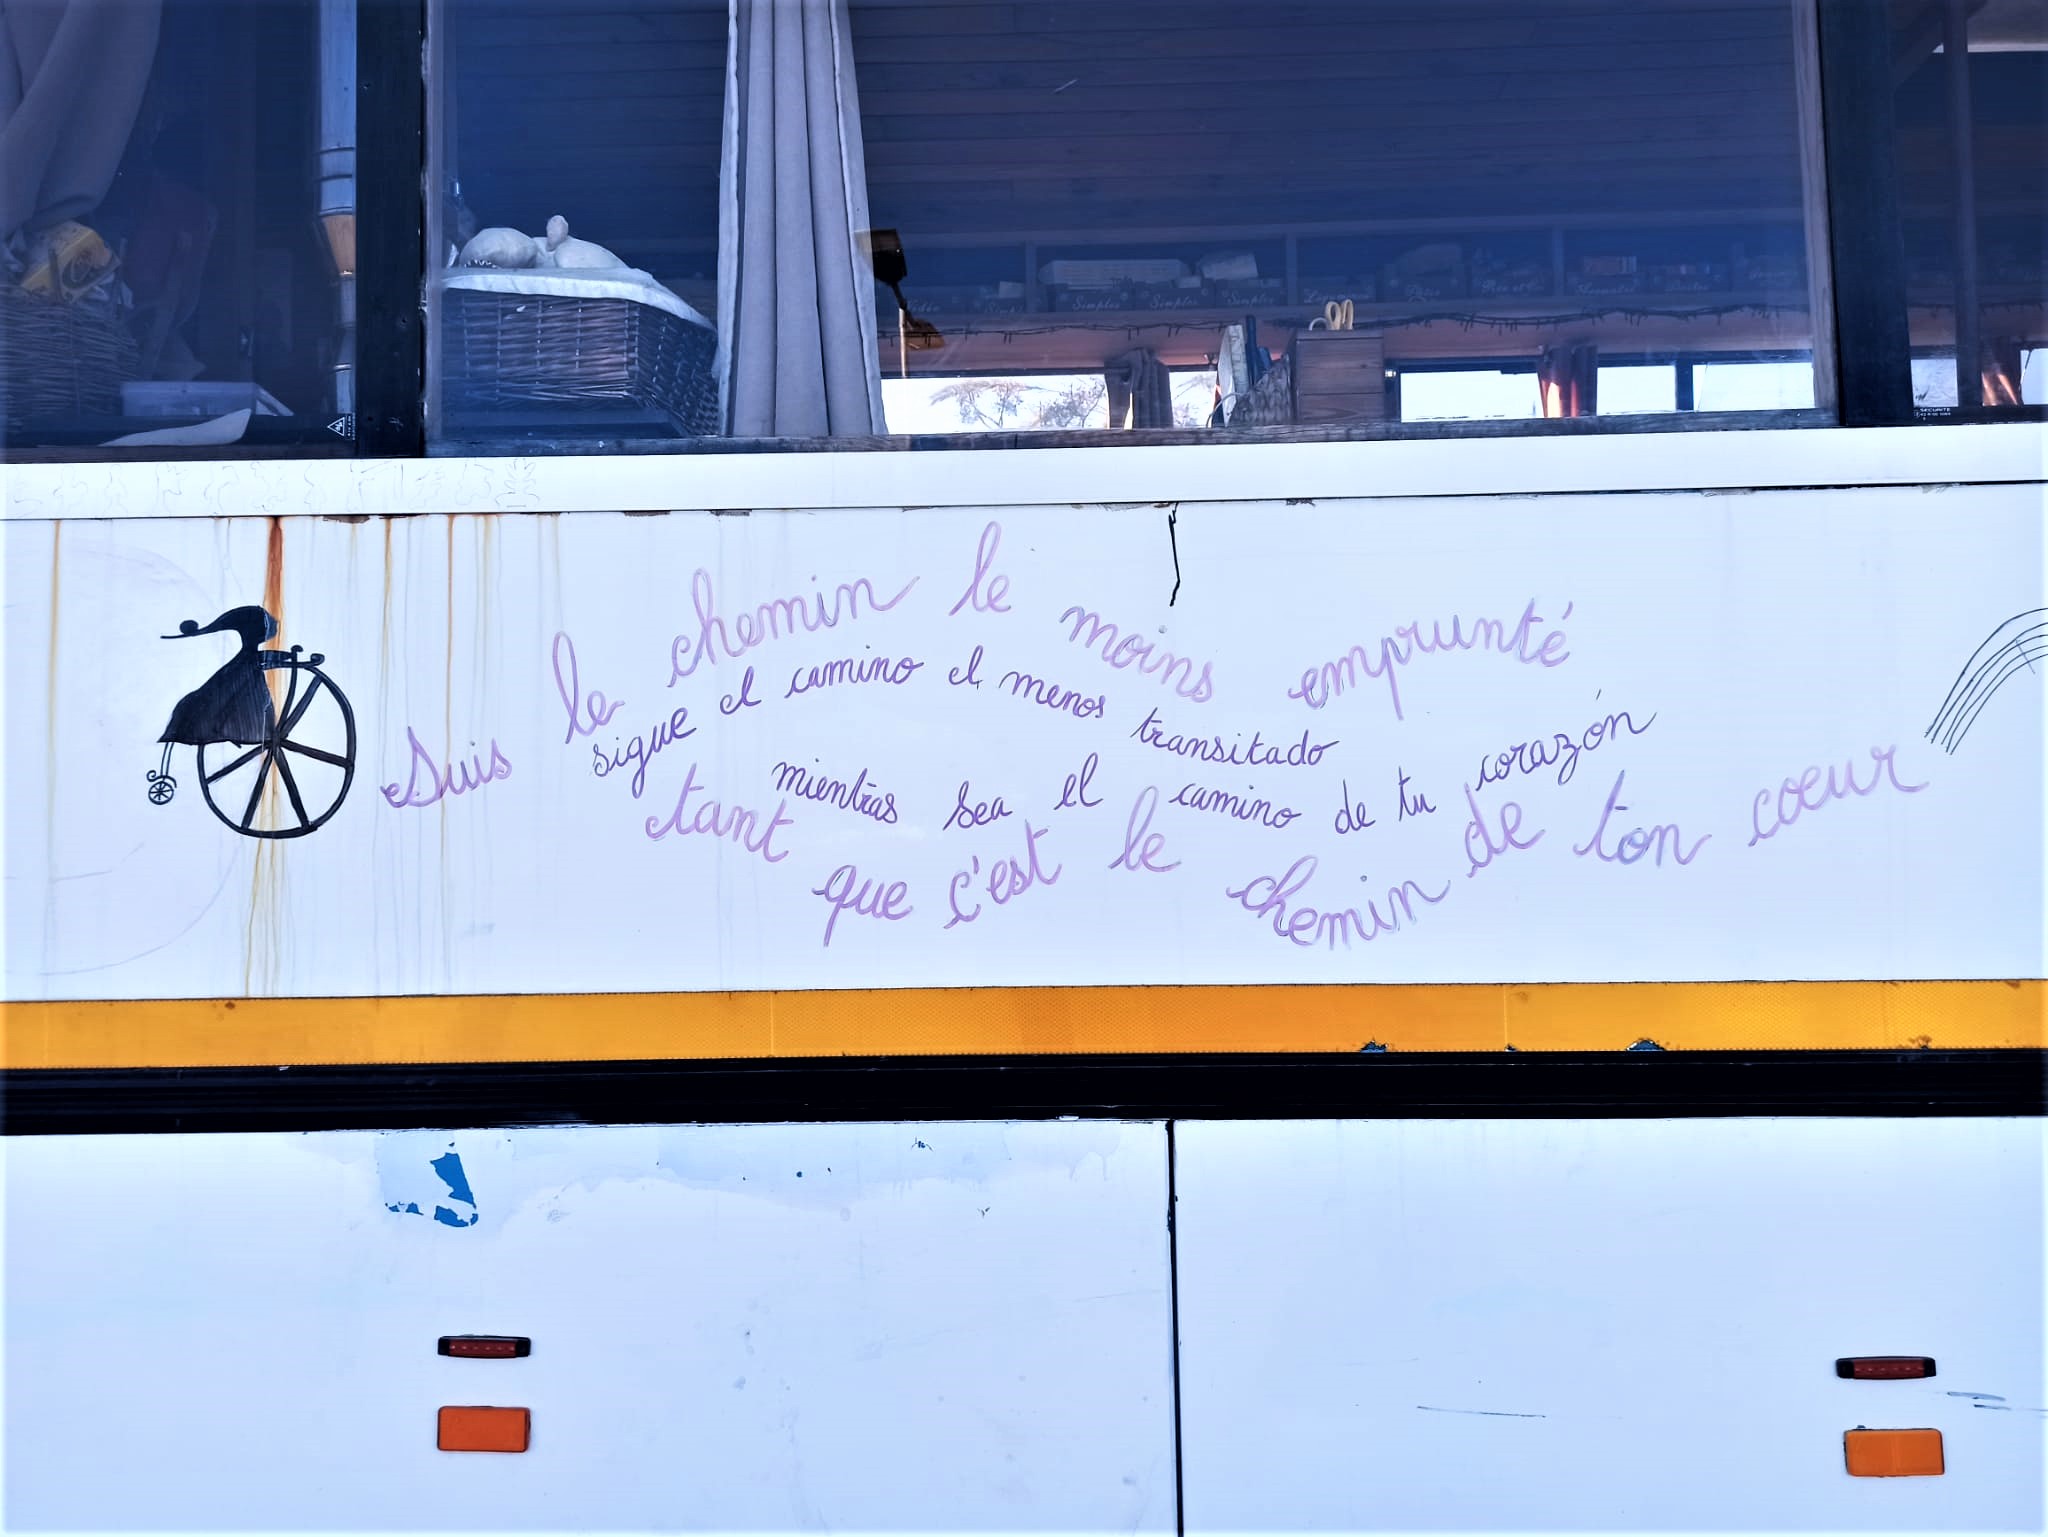 Simples
Simples
Simples
SECURITE
Suis le chemin le moins emprunté
sigue el camino el menos transitado
mientras sea el camino de tu corazón
tant que c'est le chemin de ton coeur